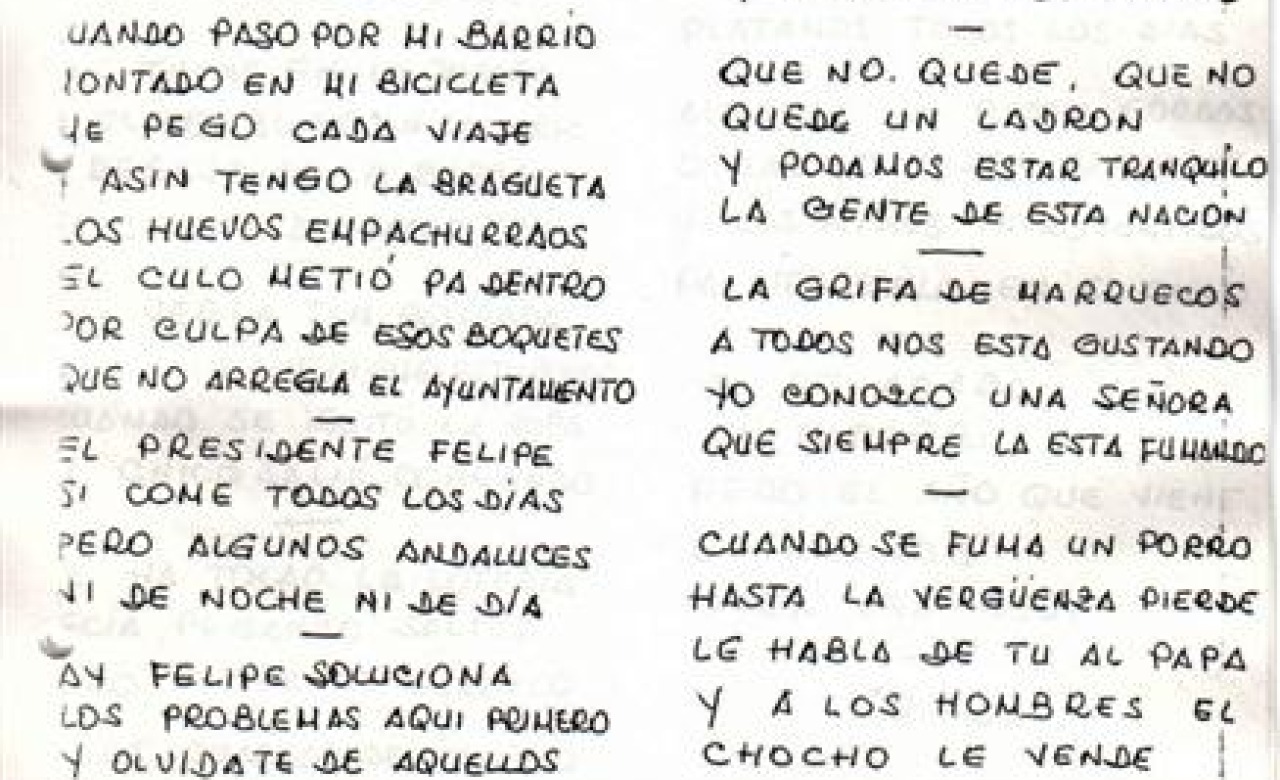 UANDO PASO POR MI BARRIO
MONTADO EN MI BICICLETA
ME PEGO CADA VIAJE
Y ASIN TENGO LA BRAGUETA
LOS HUEVOS EMPACHURRAOS
EL CULO METIÓ PA DENTRO
POR CULPA DE ESOS BOQUETES
QUE NO ARREGLA EL AYUNTAMIENTO
EL PRESIDENTE FELIPE
SI COME TODOS LOS DÍAS
PERO ALGUNOS ANDALUCES
NI DE NOCHE NI DE DÍA
AY FELIPE SOLUCIONA
LOS PROBLEMAS AQUI PRIMERO
Y OLVIDATE DE AQUELLOS
QUE NO. QUEDE, QUE NO
QUEDE UN LADRON
Y PODAMOS ESTAR TRANQUILO
LA GENTE DE ESTA NACION
LA GRIFA DE MARRUECOS
A TODOS NOS ESTA GUSTANDO
YO CONOZCO UNA SEÑORA
QUE SIEMPRE LA ESTA FUMANDO
CUANDO SE FUMA UN PORRO
HASTA LA VERGÜENZA PIERDE
LE HABLA DE TU AL PAPA
Y A LOS HOMBRES EL
CHOCHO LE VENDE